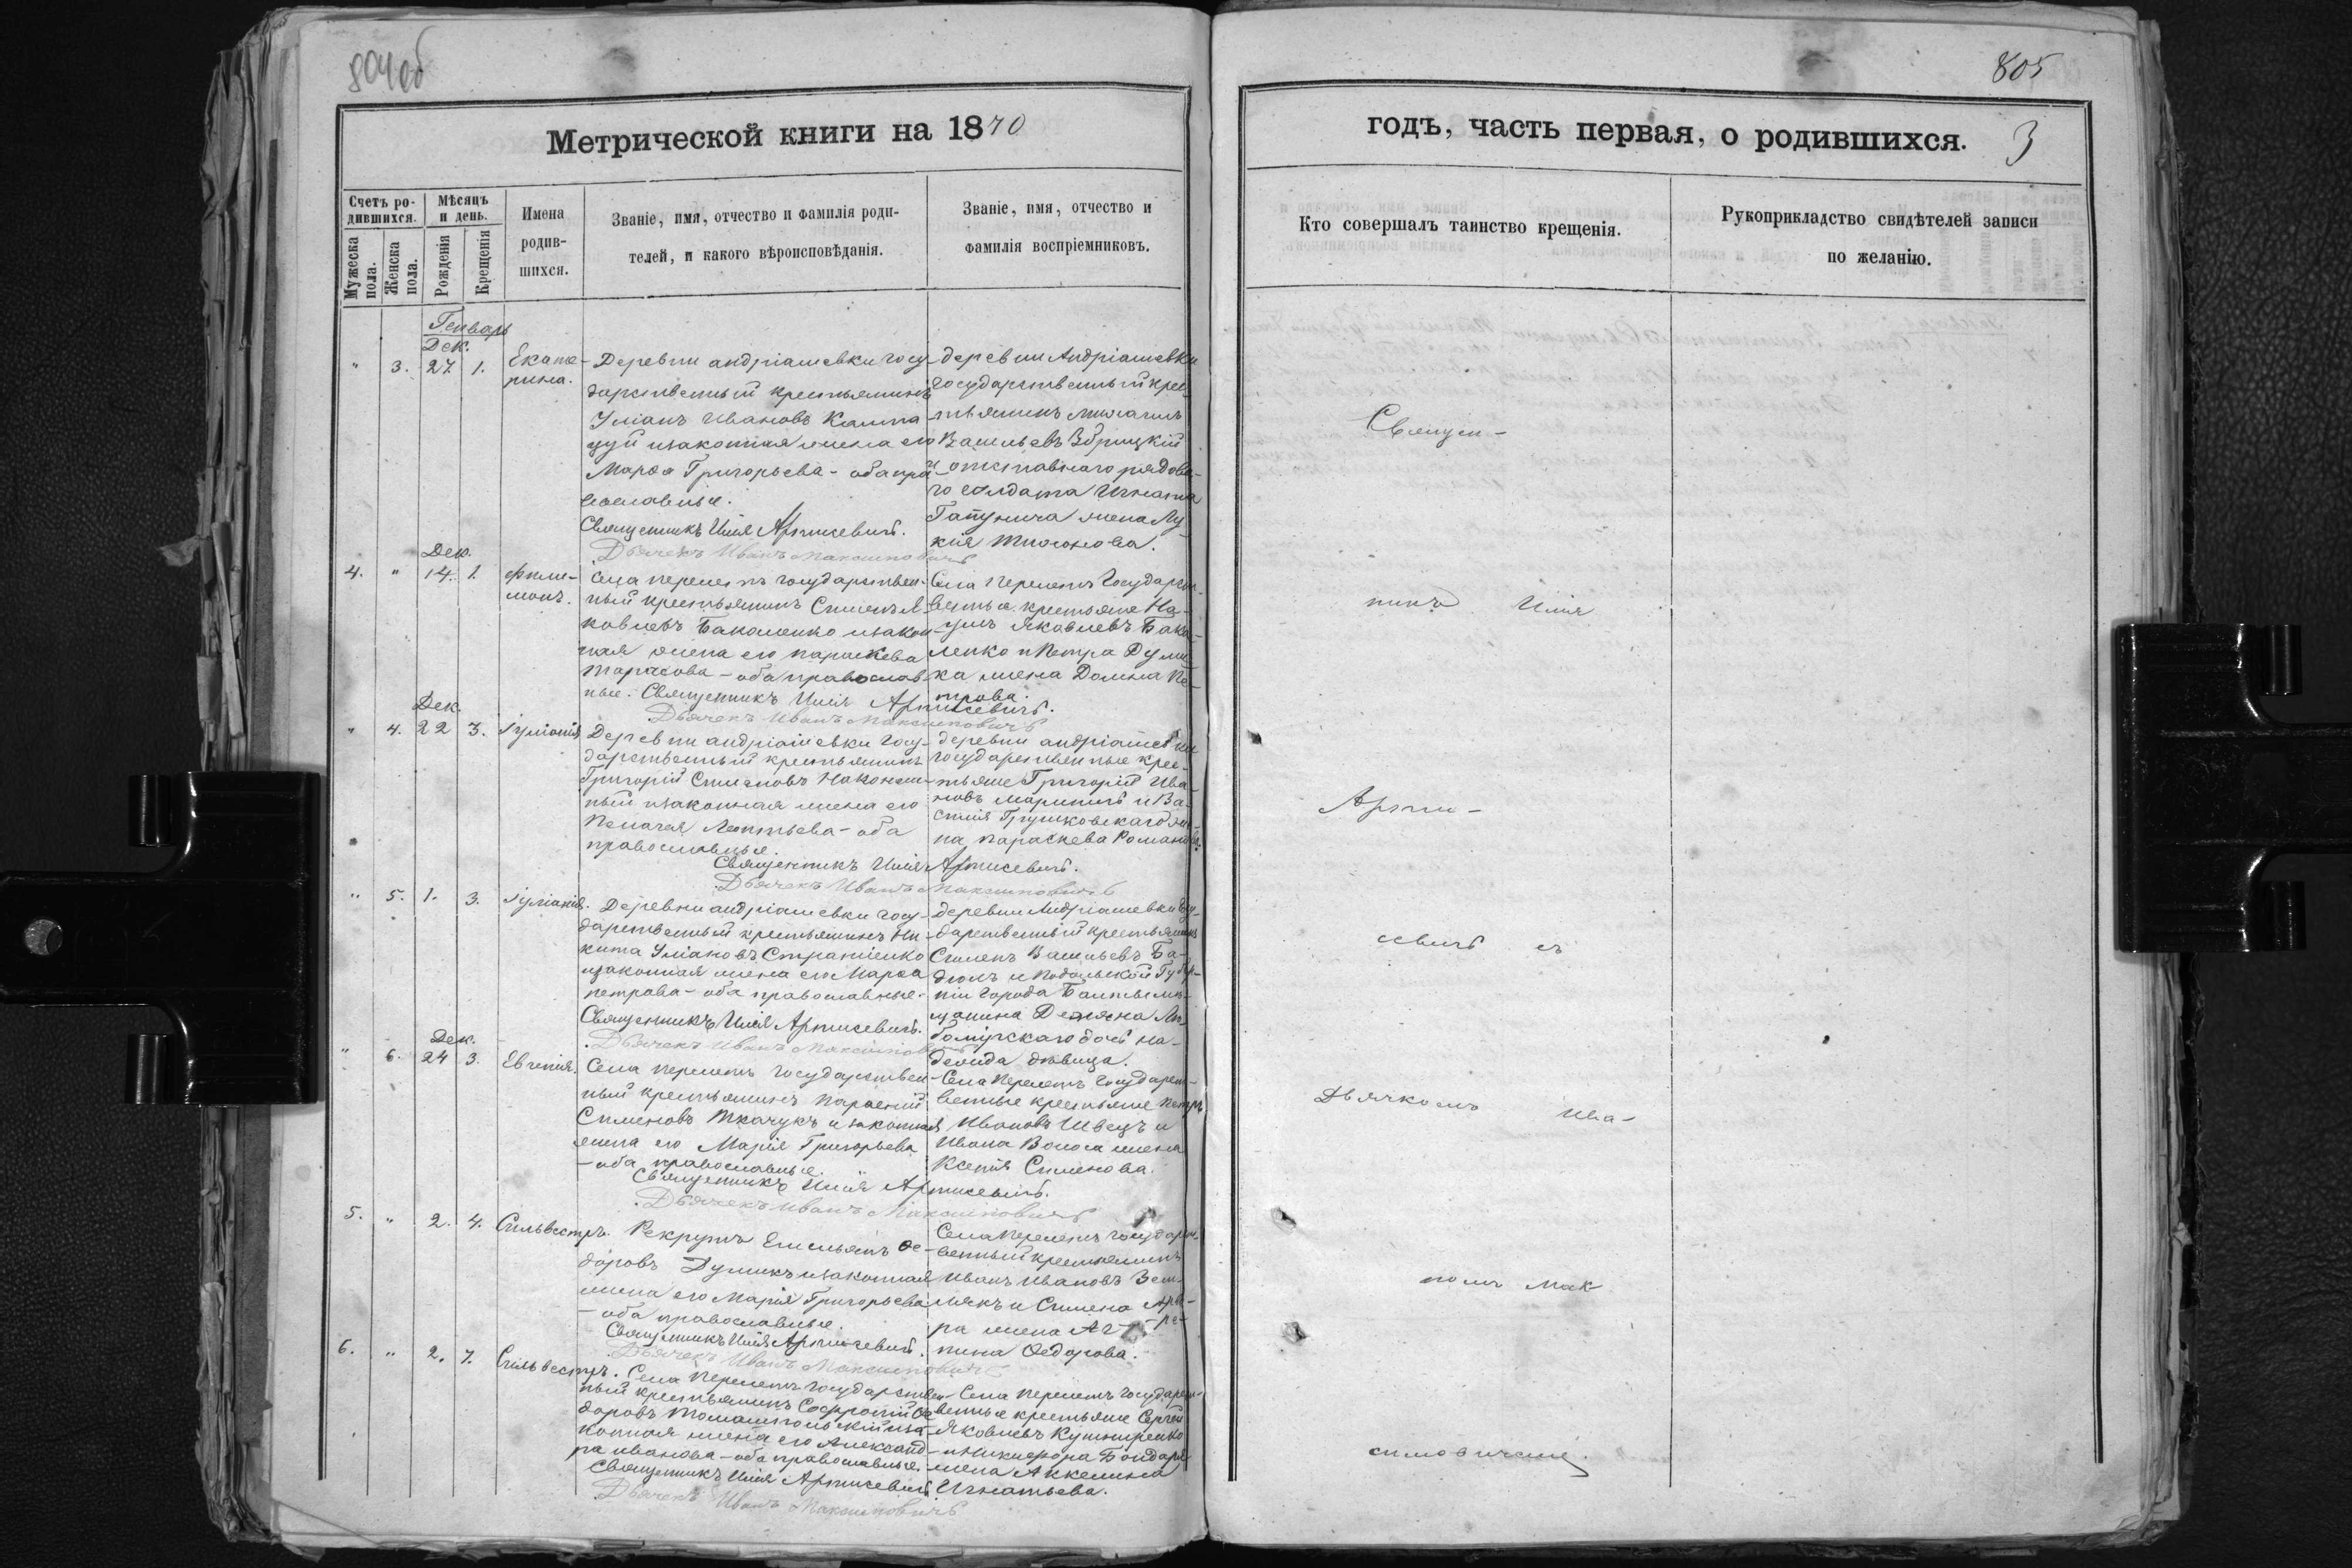 804об
805
Метрической книги на 1870
годъ, часть первая, о родившихся. 3
Счетъ родившихся.
Мѣсяцъ и день.
Имена родившихся.
Званіе, имя, отчество и фамилія родителей, и какого вѣроисповѣданія.
Званіе, имя, отчество и фамилія воспріемниковъ.
Кто совершалъ таинство крещенія.
Рукоприкладство свидѣтелей записи по желанію.
Мужеска пола.
Женска пола.
Рожденія
Крещенія
Генварь
Дек.
" 3. 27. 1. Екате-
рина.
Деревни андріашевки госу-
дарственный крестьянинъ
Уліанъ Ивановъ
цуй изаконная жена его
Марѳа Григорьева - оба пра-
вославные.
Священникъ Илія Артисевичъ.
Дьячекъ Иванъ Максимовичъ
деревни Андріашевки
государственный крес-
тьянинъ Михаилъ
Васильевъ Збрицкій
и отставнаго рядова-
го солдата Игната
жена Лу-
кія Тихонова.
Дек.
4. " 14. 1. Фили-
монъ.
Села перелетъ государствен-
ный крестьянинъ Симеонъ Я-
ковлевъ Бакаленко изакон-
ная жена его параскева
Тарасова - оба православ-
ные. Священникъ Илія Артисевичъ.
Дьячекъ Иванъ Максимовичъ
Села Перелетъ Государст-
венные крестьяне На-
умъ Яковлевъ Бака-
ленко и Петра Думи-
ка жена Домна Пе-
трова.
Дек.
" 4. 22 3. Іуліанія
Деревни андріашевки госу-
дарственный крестьянинъ
Григорій Симеоновъ
ный изаконная жена его
Пелагея Леонтьева - оба
православные.
Священникъ Илія Артисевичъ.
Дьячекъ Иванъ Максимовичъ
деревни андріашевки
государственные крес-
тьяне Григорій Ива-
новъ и Ва-
силія Грушковскаго же-
на параскева Романова.
" 5. 1. 3. Іуліанія.
Деревни андріашевки госу-
дарственный крестьянинъ Ни-
кита Уліановъ Страшенко
изаконная жена его Марѳа
петрова - оба православные.
Священникъ Илія Артисевичъ.
Дьячекъ Иванъ Максимовичъ
деревни Андріашевки Госу-
дарственный крестьянинъ
Симеонъ Васильевъ Ба-
и Подольской Губер-
ніи города Балты мѣ-
щанина
дочь На-
дежда дѣвица.
Дек.
" 6. 24 3. Евгенія.
Села перелетъ государствен-
ный крестьянинъ Парѳеній
Симеоновъ Ткачукъ и законная
жена его Марія Григорьева
- оба православные.
Священникъ Илія Артисевичъ.
Дьячекъ Иванъ Максимовичъ
Села Перелетъ Государст-
венные крестьяне Петръ
Ивановъ Швецъ и
Ивана Волоса жена
Ксенія Симеонова.
5. " 2. 4. Сильвестръ.
Рекрутъ Емельянъ Ѳе-
доровъ Думикъ изаконная
жена его Марія Григорьева
- оба православные.
Священникъ Илія Артисевичъ.
Дьячекъ Иванъ Максимовичъ
Села Перелетъ государст-
венный крестьянинъ
Иванъ Ивановъ Зем-
лякъ и Симеона
ра жена
пина Ѳедорова.
6. " 2. 7. Сильвестръ.
Села Перелетъ государствен-
ный крестьянинъ Софроній Ѳе-
доровъ Томашпольскій иза-
конная жена его Александ-
ра иванова - оба православные.
Священникъ Илія Артисевичъ.
Дьячекъ Иванъ Максимовичъ
Села Перелетъ государст-
венные крестьяне Сергей
Яковлевъ Кушниренко
и Никифора Бондаря
жена Аккелина
Игнатьева.
Священ-
никъ Илія
Арти-
севичъ съ
Дьячкомъ Ива-
номъ Мак
симовичемъ.